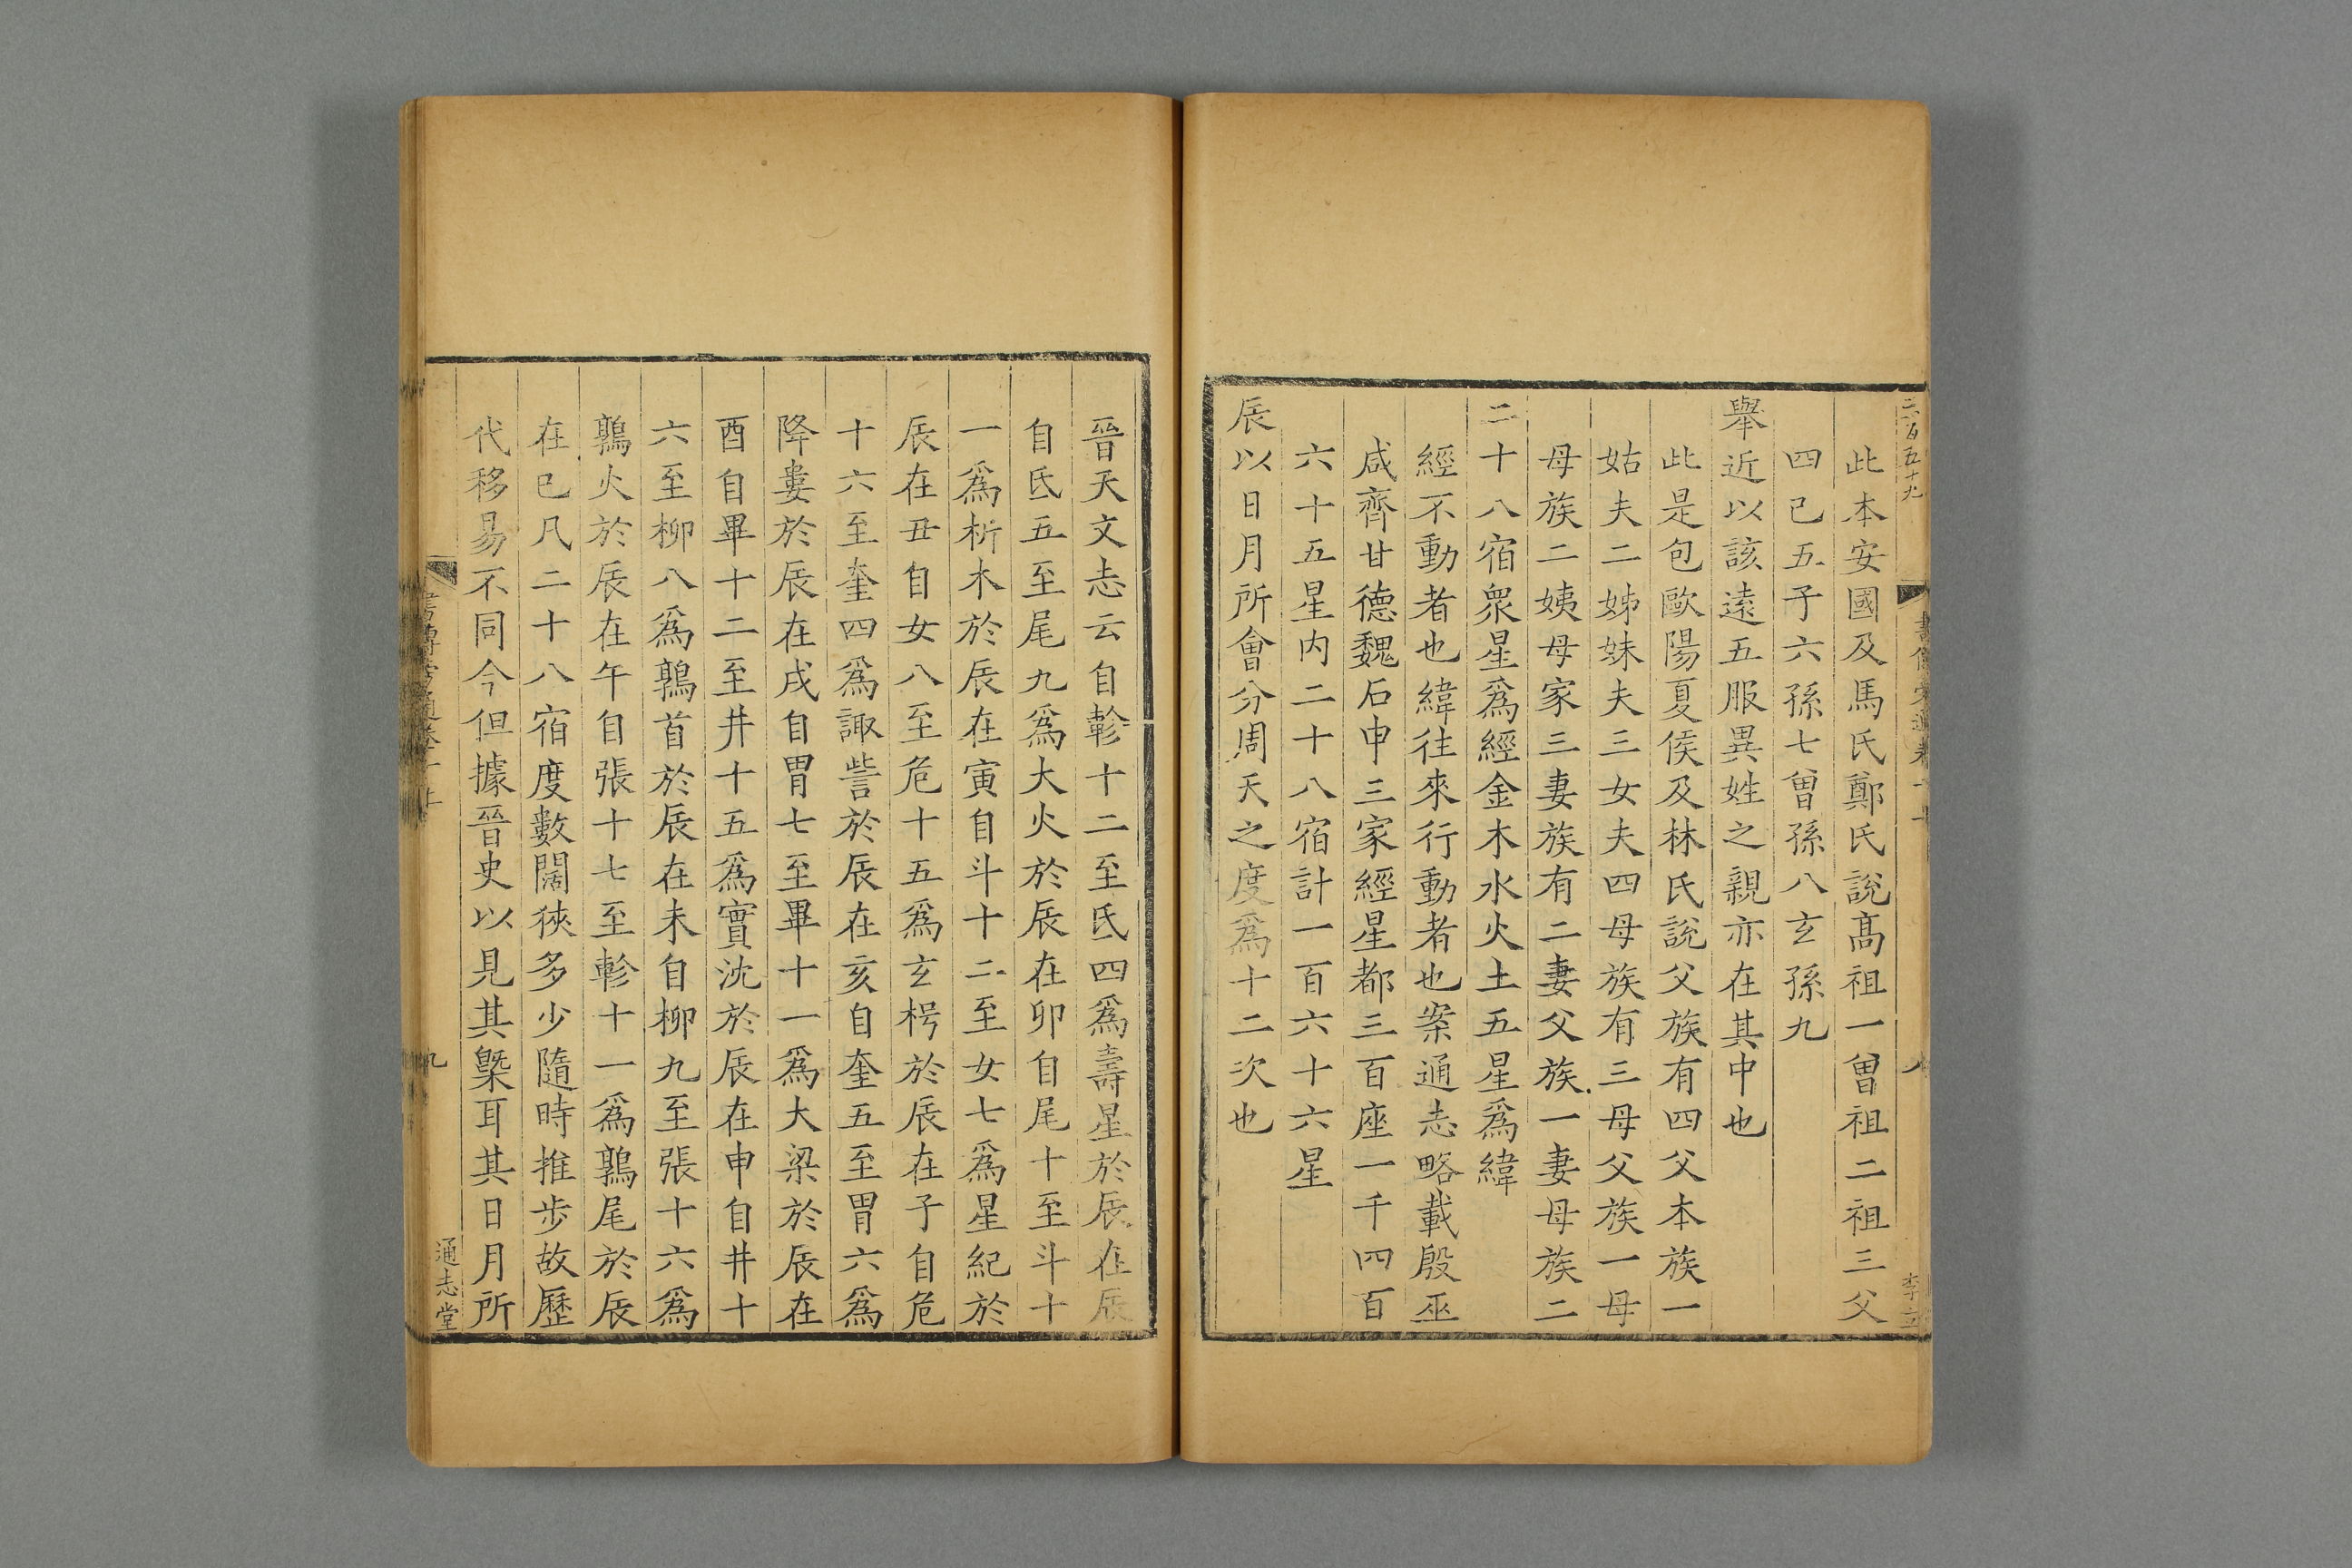 三百五十九
李立
此本安國及馬氏鄭氏說髙祖一曽祖二祖三父
四己五子六孫七曽孫八玄孫九
舉近以該逺五服異姓之親亦在其中也
此是包歐陽夏侯及林氏說父族有四父本族一
姑夫二姊妹夫三女夫四母族有三母父族一母
母族二姨母家三妻族有二妻父族一妻母族二
二十八宿衆星爲經金木水火土五星爲緯
經不動者也緯往來行動者也案通志略載殷巫
咸齊甘德魏石申三家經星都三百座一千四百
六十五星内二十八宿計一百六十六星
辰以日月所會分周天之度爲十二次也
晉天文志云自軫十二至氐四爲壽星於辰在辰
自氐五至尾九爲大火於辰在卯自尾十至斗十
一爲析木於辰在寅自斗十二至女七爲星紀於
辰在丑自女八至危十五爲玄枵於辰在子自危
十六至奎四爲諏訾於辰在亥自奎五至胃六爲
降婁於辰在戌自胃七至畢十一爲大梁於辰在
酉自畢十二至井十五爲實沈於辰在申自井十
六至柳八爲鶉首於辰在未自柳九至張十六爲
鶉火於辰在午自張十七至軫十一爲鶉尾於辰
在巳凡二十八宿度數闊狹多少隨時推步故歷
代移易不同今但據晉史以見其槩耳其日月所
九
通志堂